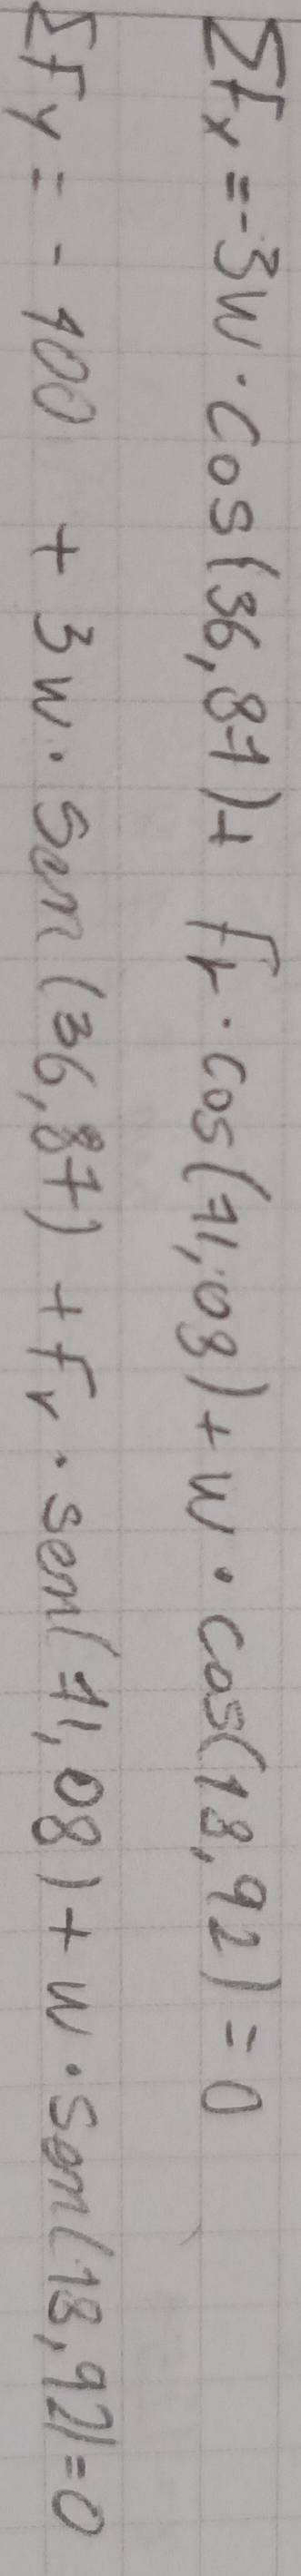 ΣFx = -3W · cos(36,87) + Fr · cos(71,08) + W · cos(18,92) = 0
ΣFy = - 100 + 3W · sen(36,87) + Fr · sen(71,08) + W · sen(18,92) = 0